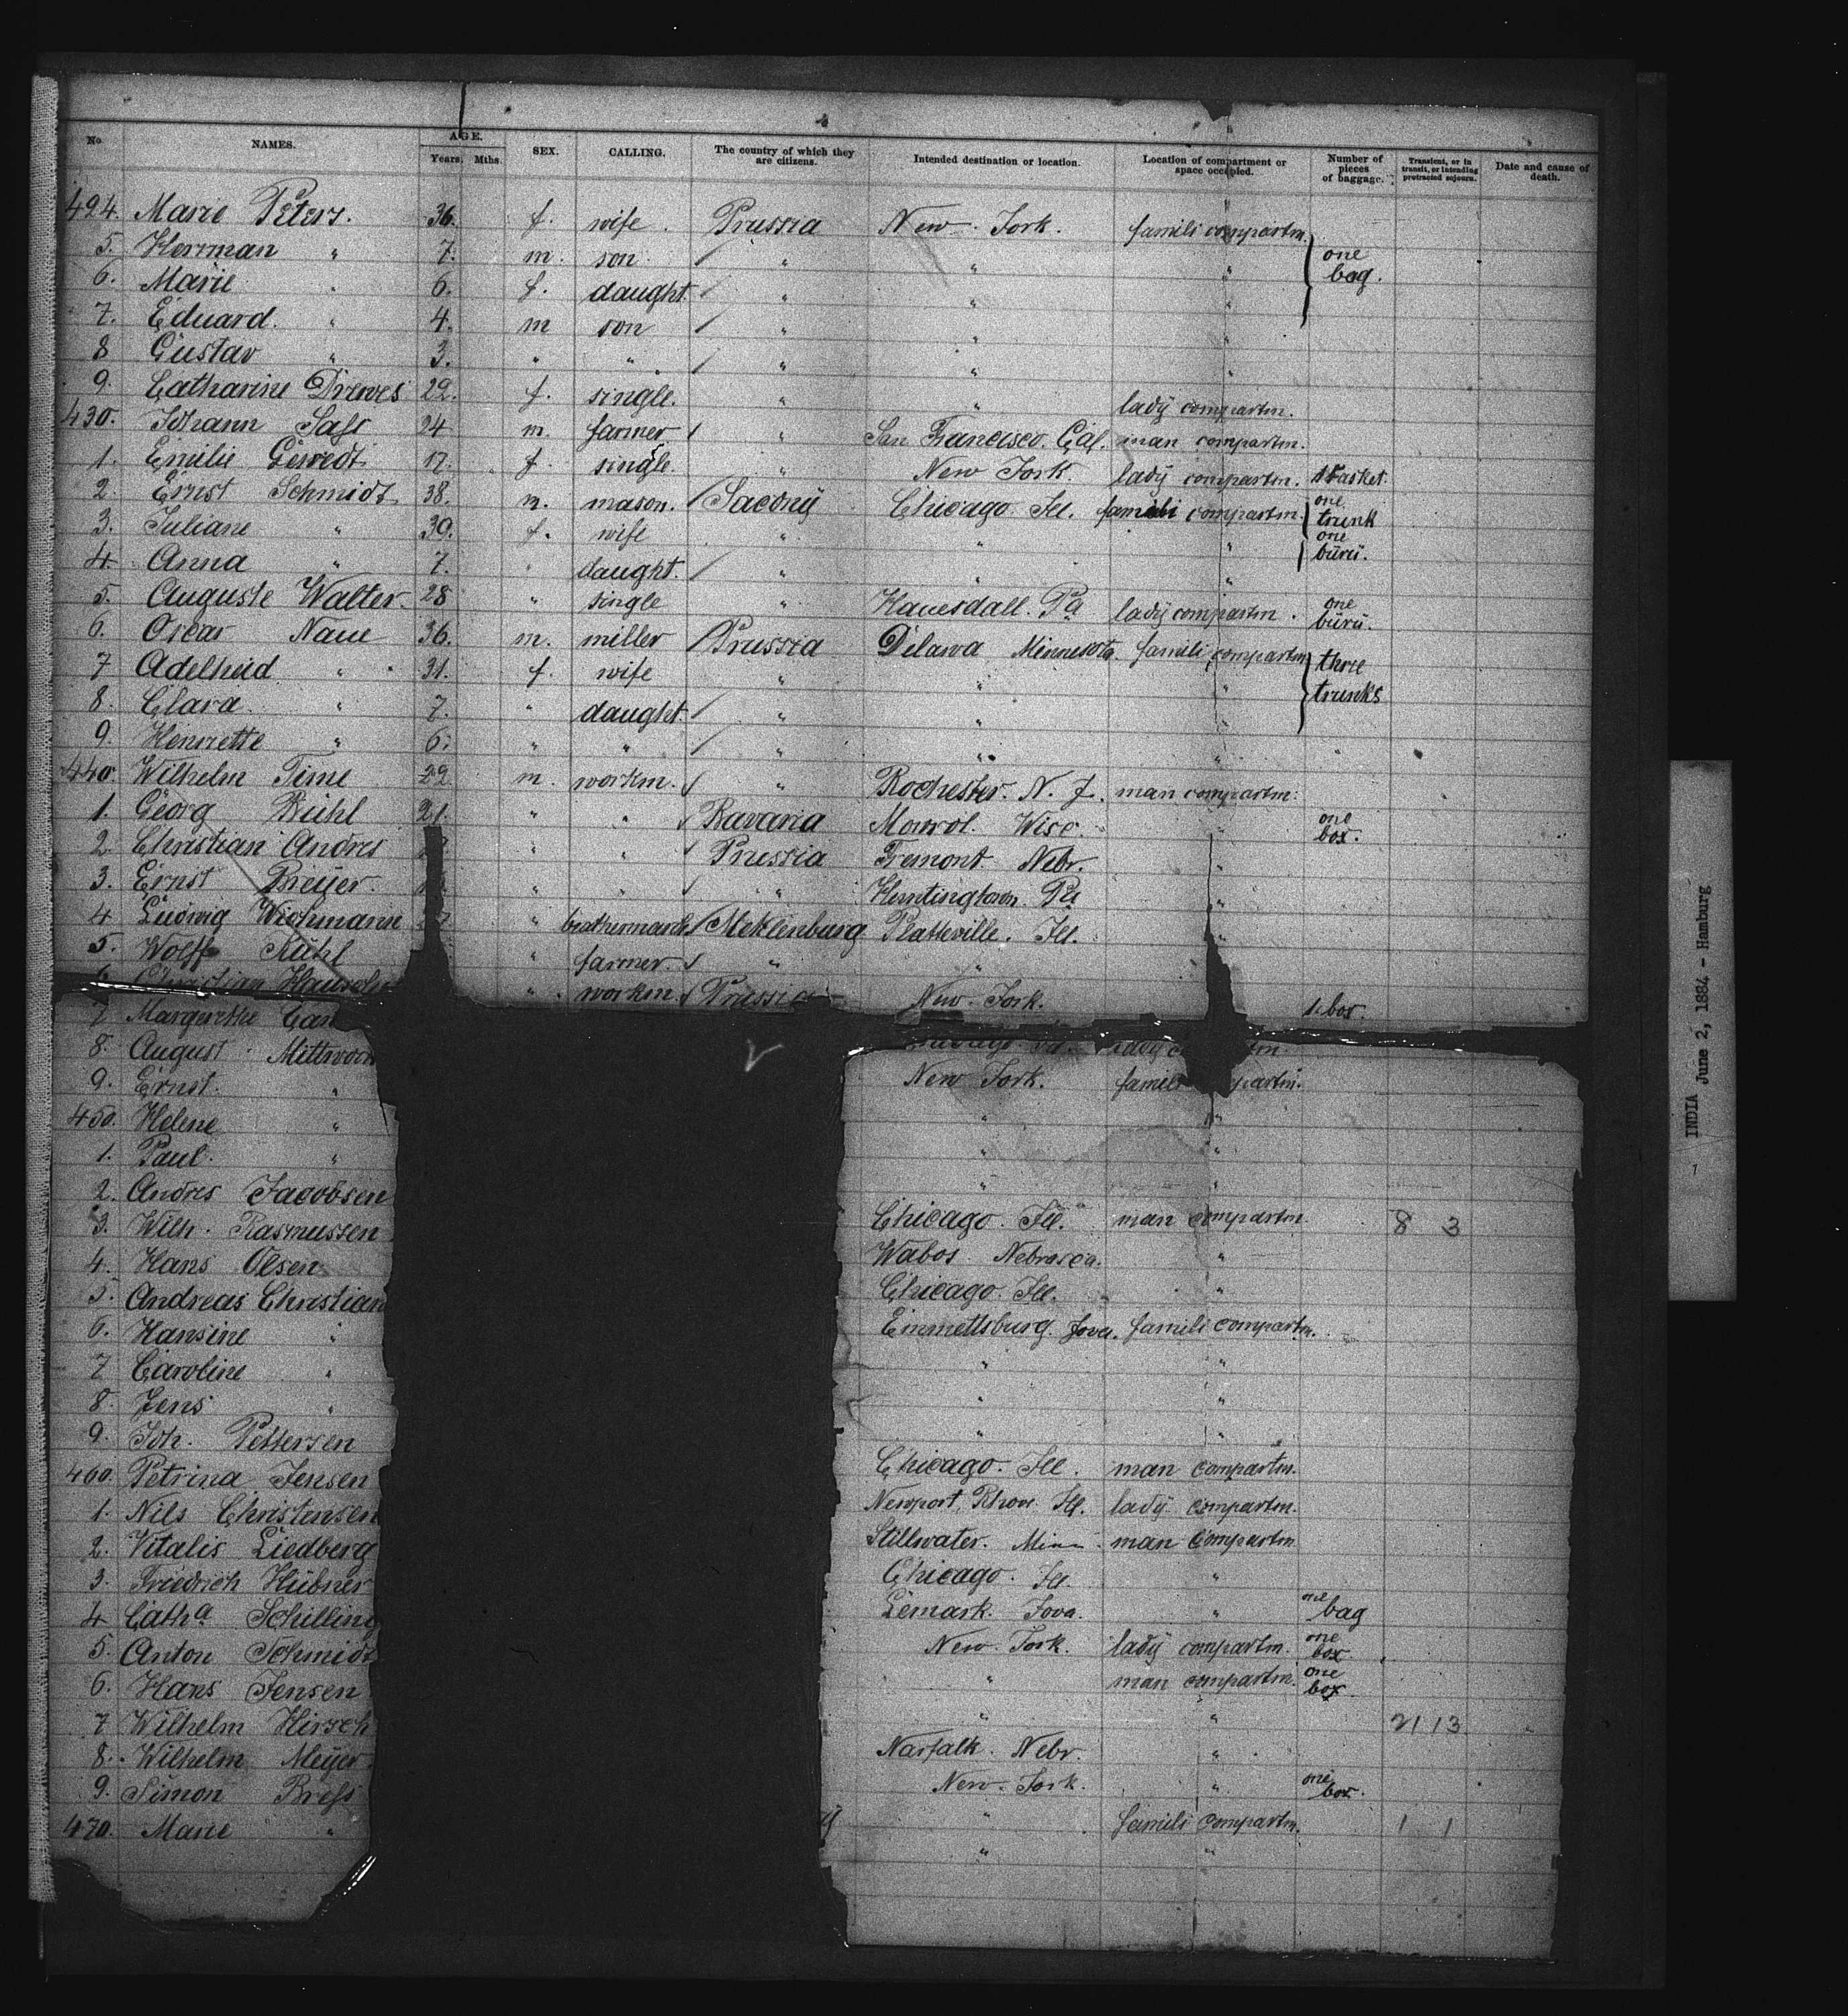 No. NAMES. AGE. Years. Mths. SEX. CALLING. The country of which they are citizens. Intended destination or location. Location of compartment or space occupied. Number of pieces of baggage. Transient, or in transit, or intending protracted sojourn. Date and cause of death.
424. Marie Peters. 36. f. wife. Prussia New-York. famili compartm.
5. Herrman " 7. m. son " " " one bag.
6. Marie " 6. f. daught. " " "
7. Eduard. " 4. m son " " "
8 Gustav " 3. " " " " "
9. Catharine Drewes 22. f. single. " " lady compartm.
430. Johann Sass 24 m. farmer " San Francisco. Cal. man compartm.
1. Emilie 17. f. single. " New York. lady compartm. 1 basket.
2. Ernst Schmidt 38. m. mason. Sacony Chicago Ill. famili compartm. one trunk
3. Juliane " 39. f. wife " " " one bürü.
4. Anna " 7. " daught. " " "
5. Auguste Walter. 28 " single " Hauesdall. Pa lady compartm. one bürü.
6. Oscar Naue 36. m. miller Prussia Delawa Minnesota. famili compartm three
7 Adelheid " 31. f. wife " " " trunks
8. Clara " 7. " daught. " " "
9. Henriette " 6. " " " " "
440. Wilhelm Time 22 m. workm. " Rochester. N. J. man compartm.
1. Georg Bühl 21. " " Bavaria Monrol. Wisc. " one box.
2. Christian Andres " " Prussia Fremont. Nebr. "
3. Ernst Breyer. " " " Huntingtown. Pa "
4 Ludwig Wichmann " Meklenburg Platteville. Ill. "
5. Wolff Kühl " farmer. " "
6. Christian " workm. Prussia New-York. 1 box.
7. Margarethe
8. August Mittwoch Ill. lady
9. Ernst. " New York. famili compartm.
450. Helene " " "
1. Paul. " " "
2. Andres Jacobsen " "
3. Wilh. Rasmussen Chicago. Ill. man compartm. 8 3
4. Hans Olsen Wabos. Nebrasca. "
5. Andreas Christian Chicago. Ill. "
6. Hansine " Emmettsburg. Jova. famili compartm.
7 Caroline " " "
8. Jens " " "
9. Joh. Pettersen " "
460. Petrina Jensen Chicago. Ill. man compartm.
1. Nils Christensen Newport. Ill. lady compartm.
2. Vitalis Liedberg Stillwater. Minn. man compartm
3. Friedrich Hübner Chicago. Ill. "
4 Catha Schilling Lemark. Jova. " one bag
5. Anton Schmidt New-York. lady compartm. one box
6. Hans Jensen " man compartm. one box.
7 Wilhelm Hirsch " " 21 13
8. Wilhelm Meyer. Narfalk. Nebr. "
9. Simon Bress New-York. " one box.
470. Marie " " famili compartm. 1 1
" "
INDIA June 2, 1884 - Hamburg